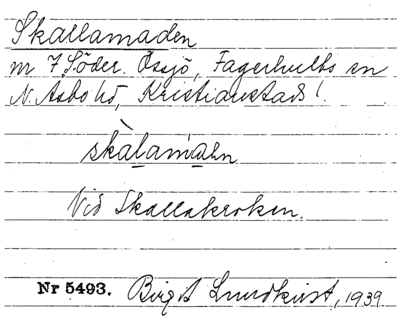 Skallamaden
nr 7 Söder. Össjö, Fagerhults sn
N. Åsbo hd, Kristianstads l.
skàlamaɷn
Vid Skallakroken.
Nr 5493. Birgit Lundkvist, 1939